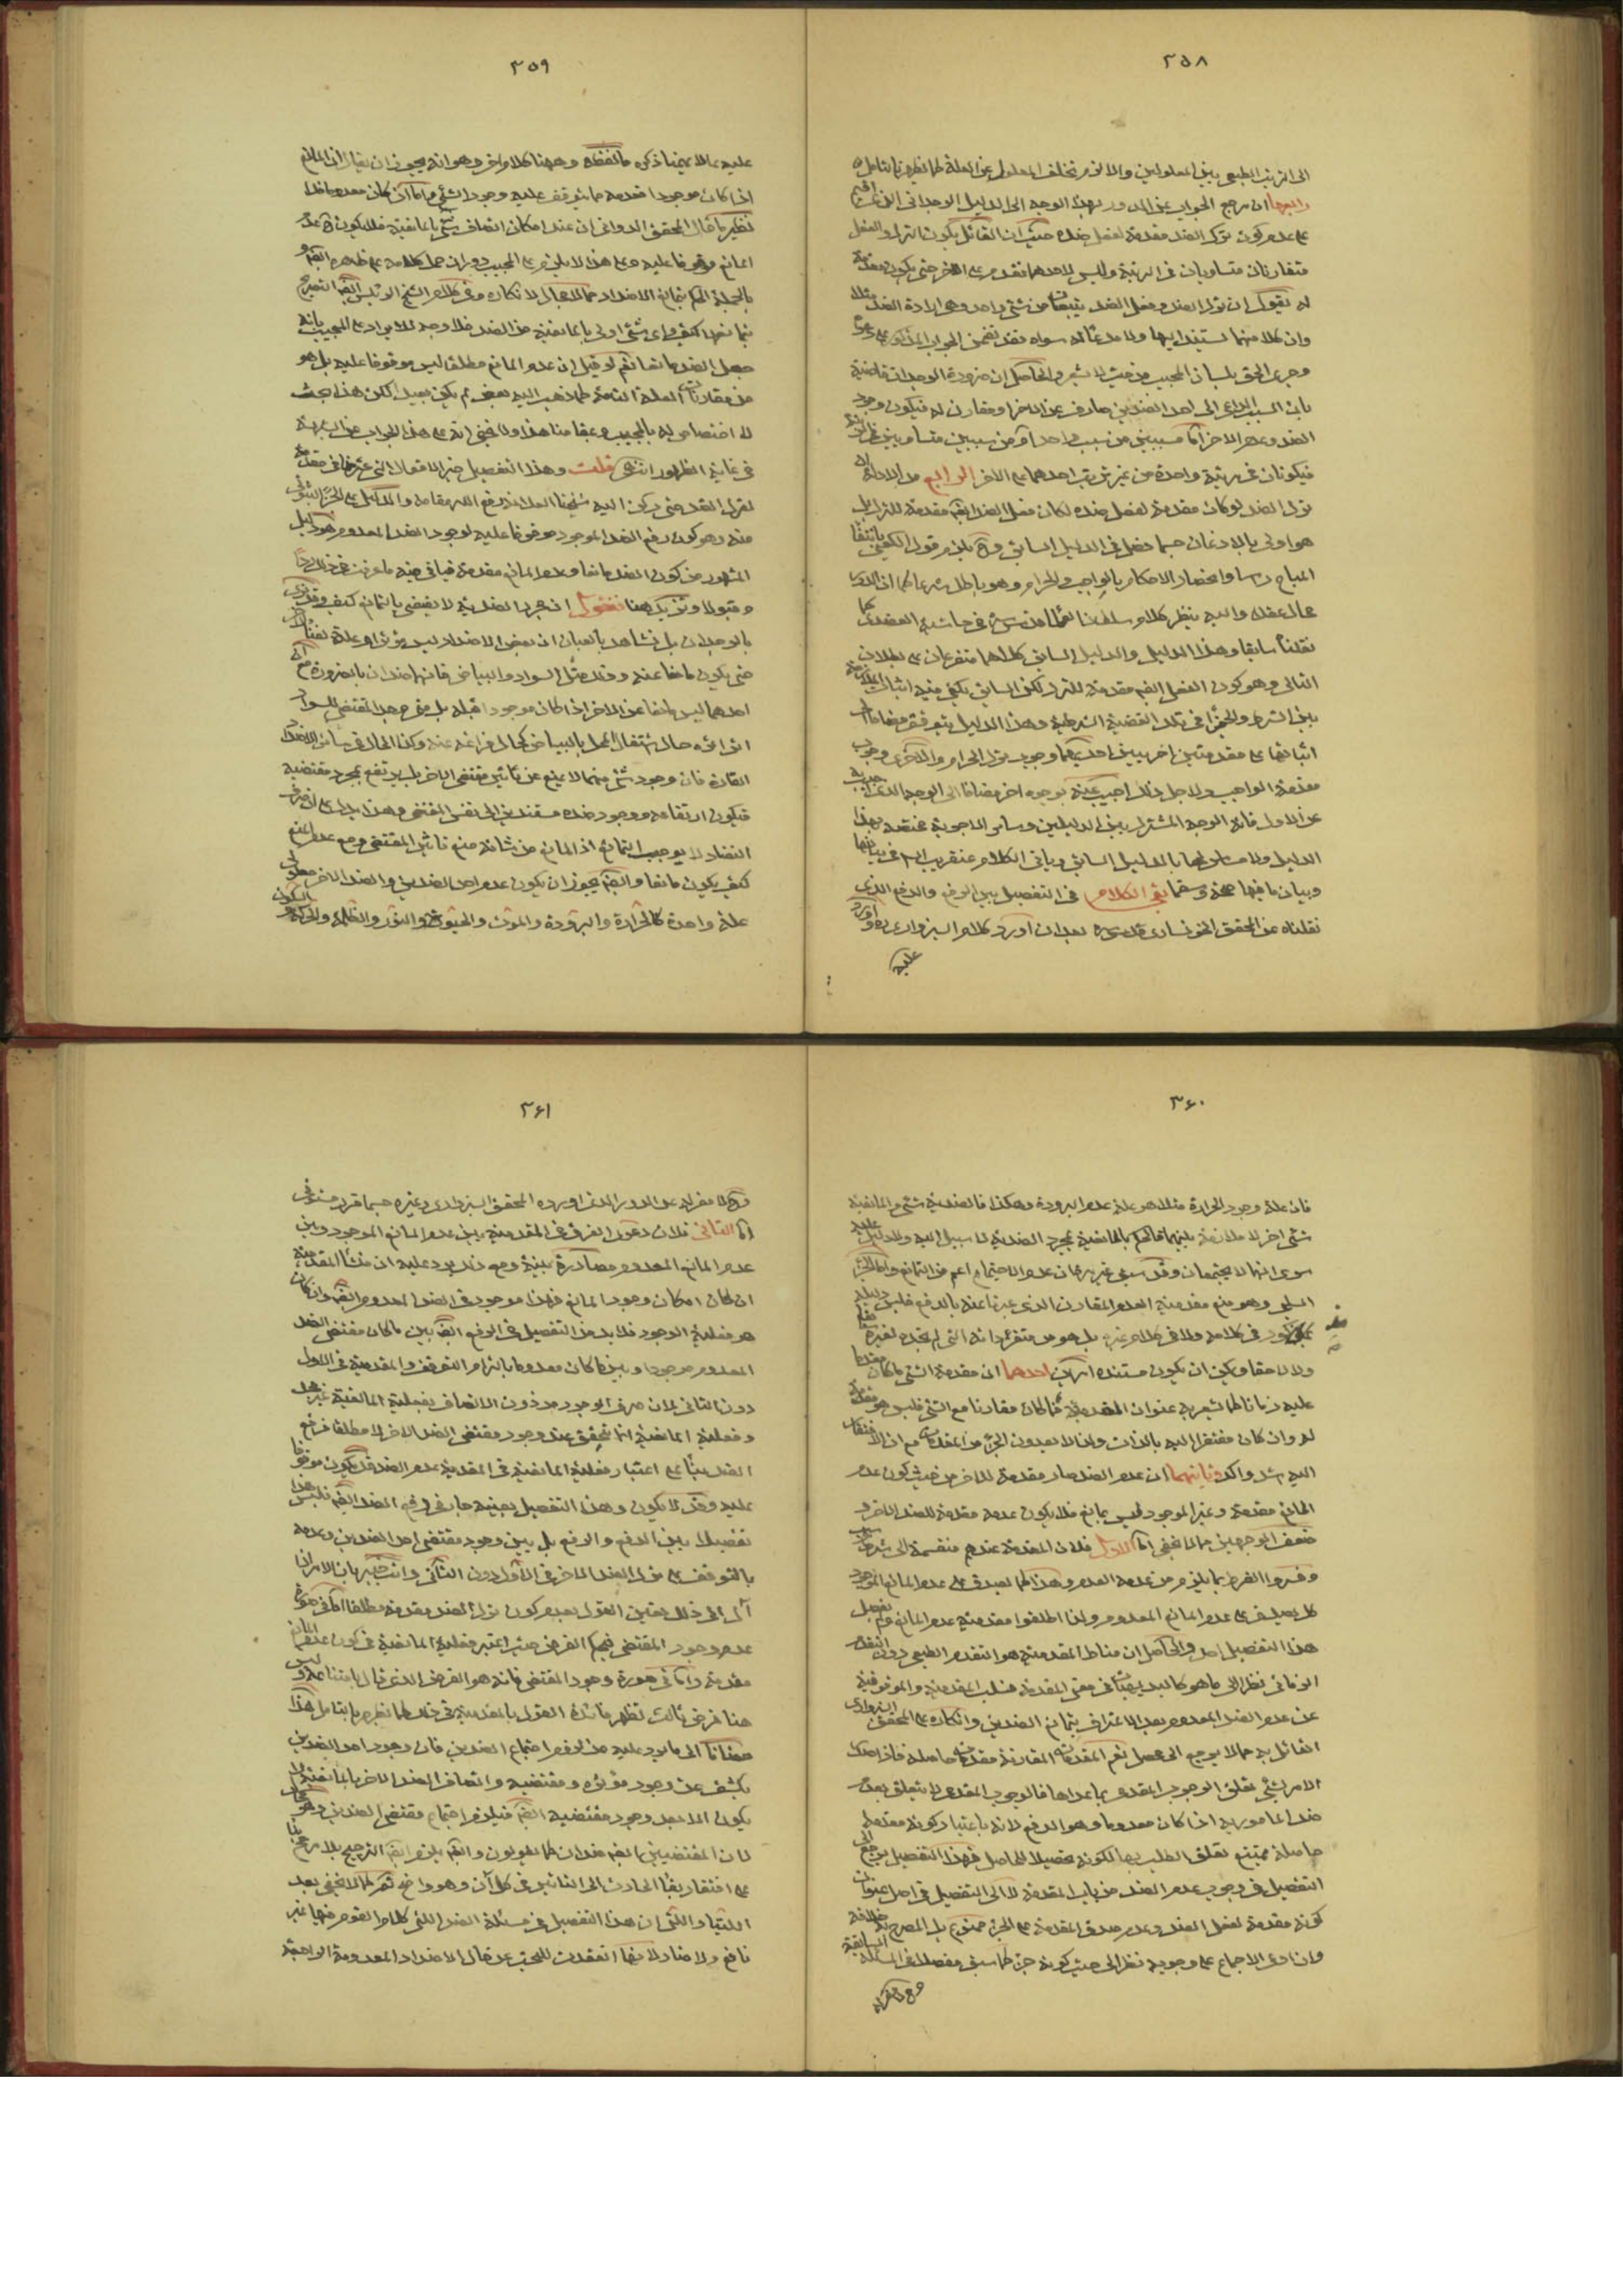 ٣٥٨
الى الترتيب الطبيعى بين المعلولين والا لزم تخلف المعلول عن العلة كما يظهر بالتامل
رابعها ان مرجع الجواب عن الدور بهذا الوجه الى الدليل الوجدانى الذى
على عدم كون ترك الضد مقدمة لفعل ضده حيث ان القائل بكون الترك والفعل
متقارنان متساويان فى الرتبة وليس لاحدهما تقدم على الاخر حتى يكون مقدمة
له يقول ان ترك الضد وفعل الضد من شئ واحد وهى ارادة الضد
وان كلا منهما مستند اليها ولا مدعى له سواه فقد تضمن الجواب المذكور
وجرى الحق بلسان المجيب من حيث لا يشعر والحاصل ان ضرورة الوجدان قاضية
بان السبب الداعى الى احد الضدين صارف عن الاخر ومقارن له فيكون وجود
الضد وعدم الاخر اما مسببين من سبب واحد او من سببين متساويين
فيكونان فى مرتبة واحدة من غير ترتب احدهما على الاخر الرابع من الادلة
ترك الضد لو كان مقدمة لفعل ضده لكان فعل الضد ايضا مقدمة للترك بل
هو اولى بالاذعان حسبما فصل فى الدليل السابق وح يلزم قول الكعبى بانتفاء
المباح راسا وانحصار الاحكام بالواجب والحرام وهو باطل شرعا كما ان الدور
محال عقلا واليه ينظر كلام سلطان العلماء قدس سره فى حاشية العضدى كما
نقلناه سابقا وهذا الدليل والدليل السابق كلاهما متفرعان على بطلان
التالى وهو كون الفعل ايضا مقدمة للترك لكن السابق يكفى فيه اثبات الملازمة
بين الشرط والجزاء فى تلك القضية الشرطية وهذا الدليل يتوقف مضافا الى
اثباتها على مقدمتين اخريين احديهما وجوب ترك الحرام والاخرى وجوب
مقدمة الواجب ولاجل ذلك اجيب عنه بوجوه اخر مضافا الى الوجه الذى اجيب به
عن الاول فانه الوجه المشترك بين الدليلين وسائر الاجوبة مختصة بهذا
الدليل ولا مساس لها بالدليل السابق وياتى الكلام عنقريب فى بيانها
وبيان ما فيها صحة وسقما بقى الكلام فى التفصيل بين الرفع والدفع الذى
نقلناه عن المحقق الخونسارى قدس سره بعد ان اورد كلام السبزوارى ره واورد
عليه
٣٥٩
عليه بما لا يهمنا ذكره ما لفظه وههنا كلام اخر وهو انه يجوز ان يقال ان المانع
اذا كان موجودا فعدمه مما يتوقف عليه وجود الشئ واما اذا كان معدوما فلا
نظير ما قال المحقق الدوانى ان عند امكان اتصاف شئ بالمانعية فلا يكون ح عدم
المانع موقوفا عليه وعلى هذا لا يلزم على المجيب دور ان حمل كلامه على ظاهره ايضا و
بالجملة الحكم بتمانع الاضداد مما لا مجال لانكاره وفى كلام الشيخ الرئيس ايضا التصريح
بتمانعها كيف واى شئ اولى بالمانعية من الضد فلا وجه للايراد على المجيب بانه
جعل الضد مانعا نعم لو قيل ان عدم المانع مطلقا ليس موقوفا عليه بل هو
من مقارنات العلة التامة كما ذهب اليه بعض لم يكن بعيدا لكن هذا بحث
لا اختصاص له بالمجيب ومقامنا هذا ولا يخفى انه على هذا الجواب عن الشبهة
فى غاية الظهور انتهى قلت وهذا التفصيل خير الاقوال التى عثرنا فى مقدمية
لترك الضد حتى ركن اليه شيخنا العلامة رفع الله مقامه والدليل على الجزء الثبوتى
منه وهو كون رفع الضد الموجود موقوفا عليه لوجود الضد المعدوم هو دليل
المشهور من كون الضد مانعا وعدم المانع مقدمة فياتى فيه ما عرفت هناك ردا
وقبولا ونزيدك هنا فنقول ان مجرد الضدية لا يقضى بالتمانع كيف وقد ندرك
بالوجدان بل نشاهد بالعيان ان بعض الاضداد ليس
حتى يكون مانعا عنه وذلك مثل السواد والبياض فانهما ضدان بالضرورة مع ان
احدهما ليس مانعا عن الاخر اذا كان موجودا قبله بل متى وجد المقتضى للسواد
اثر اثره حال اشتغال المحل بالبياض كحال فراغه عنه وكذا الحال فى سائر الاضداد
القارة فان وجود شئ منهما لا يمنع عن تاثير مقتضى الاخر بل يرتفع بمجرد مقتضيه
فيكون ارتفاعه ووجود ضده مستندين الى نفس المقتضى وهذا يدل على ان صرف
التضاد لا يوجب التمانع اذ المانع من شانه منع تاثير المقتضى ومع عدم المنع
كيف يكون مانعا وايضا يجوز ان يكون عدم احد الضدين والضد الاخر معلولى
علة واحدة كالحرارة والبرودة والموت والحيوة والنور والظلمة والحركة والسكون
٣٦٠
فان علة وجود الحرارة مثلا هو علة عدم البرودة وهكذا فالضدية شئ والمانعية
شئ اخر لا ملازمة بينهما فالحكم بالمانعية بمجرد الضدية لا سبيل اليه ولا دليل عليه
سوى انهما لا يجتمعان وقد سبق غير مرة ان عدم الاجتماع اعم من التمانع واما الجزء
السلبى وهو منع مقدمية العدم المقارن الذى عبرنا عنه بالدفع فليس دليله
مذكور فى كلامه ولا فى كلام غيره بل هو من متفرداته التى لم نجده لغيره سابقا
ولا لاحقا ويمكن ان يكون مستنده امرين احدهما ان مقدمة الشئ ما كان مقدما
عليه زمانا كما يشعر به عنوان المقدمية فما كان مقارنا مع الشئ فليس هو مقدمة
له وان كان مفتقرا اليه بالذات ولذا لا يعدون الجزء من المقدمات مع ان الافتقار
اليه اشد واكد وثانيهما ان عدم الضد صار مقدمة للاخر من حيث كون عدم
المانع مقدمة وغير الموجود ليس بمانع فلا يكون عدمه مقدمة للضد الاخر و
ضعف الوجهين مما لا يخفى اما الاول فلان المقدمة عندهم منقسمة الى شرط وسبب
وفسروا الشرط بما يلزم من عدمه العدم وهذا كما يصدق على عدم المانع الموجود
كك يصدق على عدم المانع المعدوم ولذا اطلقوا مقدمية عدم المانع ولم يفصل
هذا التفصيل احد والحاصل ان مناط المقدمية هو التقدم الطبيعى دون التقدم
الزمانى نظرا الى ما هو كالبديهيات فى معنى المقدمة فسلب المقدمية والموقوفية
عن عدم الضد المعدوم بعد الاعتراف بتمانع الضدين وانكاره على المحقق السبزوارى
القائل به مما لا يرجع الى محصل نعم المقدمات المقارنة مقدمات حاصلة فاذا
الامر بشئ تعلق الوجوب المقدمى بما عداها فالوجوب المقدمى لا يتعلق بعدم
ضد المامور به اذا كان معدوما وهو الدفع لانه باعتبار كونه مقدمة
حاصلة يمتنع تعلق الطلب بها لكونه تحصيلا للحاصل فهذا التفصيل يرجع الى
التفصيل فى وجوب عدم الضد من باب المقدمة لا الى التفصيل فى اصل عنوان
كونه مقدمة لفعل الضد وعدم صدق المقدمة على الجزء ممنوع بل المصرح به خلافه
وان ادعى الاجماع على وجوبه نظرا الى حيث كونه جزءا كما سبق مفصلا فى المسئلة السابقة
٣٦١
المحقق السبزوارى وغيره حسبما قرر
اما الثانى فلان دعوى الفرق فى المقدمية بين عدم المانع الموجود وبين
عدم المانع المعدوم مصادرة بينة ومع ذلك يرد عليه ان منشأ المقدمية
ان كان امكان وجود المانع فهذا موجود فى الضد المعدوم ايضا وان كان
هو فعلية الوجود فلا بد من التفصيل فى الرفع ايضا بين ما كان مقتضى الضد
المعدوم موجودا وبين ما كان معدوما بالتزام التوقف والمقدمية فى الاول
دون الثانى لان صرف الوجود من دون الاتصاف بفعلية المانعية غير مجد
وفعلية المانعية انما تتحقق عند وجود مقتضى الضد الاخر لا مطلقا فرفع
الضد بناء على اعتبار فعلية المانعية فى المقدمية عدم الضد قد يكون موقوفا
عليه وقد لا يكون وهذا التفصيل بعينه جار فى دفع الضد ايضا فليس هذا
تفصيلا بين الدفع والرفع بل بين وجود مقتضى احد الضدين وعدمه
بالتوقف على ترك الضد الاخر فى الاول دون الثانى وانت خبير بان الامر ان
آل الى ذلك يتعين القول بعدم كون ترك الضد مقدمة مطلقا اما فى صورة
عدم وجود المقتضى فبحكم الفرض حيث اعتبر فعلية المانعية فى كون عدم المانع
مقدمة واما فى صورة وجود المقتضى فانه هو الفرض الذى قال بامتناعه وليس
هنا فرض ثالث تظهر فائدة القول بالمقدمية فى ذلك كما يظهر بالتامل هذا
مضافا الى ما يرد عليه من لزوم اجتماع الضدين فان وجود احد الضدين
يكشف عن وجود مؤثره ومقتضيه واتصاف الضد الاخر بالمانعية لا
يكون الا بعد وجود مقتضيه ايضا فيلزم اجتماع مقتضى الضدين وهو محال
لان المقتضيين ايضا ضدان كما يقولون وايضا يلزم ايضا الترجيح بلا مرجح بناء
على افتقار بقاء الحادث الى التاثير فى كل آن وهو واضح ثم كما لا يخفى بعد
اللتيا والتى ان هذا التفصيل فى مسئلة الضد التى كلام القوم فيها غير
نافع ولا ضار لانها انعقدت للبحث عن حال الاضداد المعدومة الواجبة